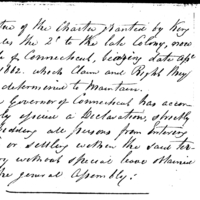 tue of the Charter granted by King
les the 2d to the late Colony, now
of Connecticut, bearing date Apl
1662. which Claim and Right they
determined to Maintain.
Governor of Connecticut has accor
ly issued a Declaration, strictly
bidding all persons from Entering
or settling within the said ter
y without special leave obtained
the general Assembly: